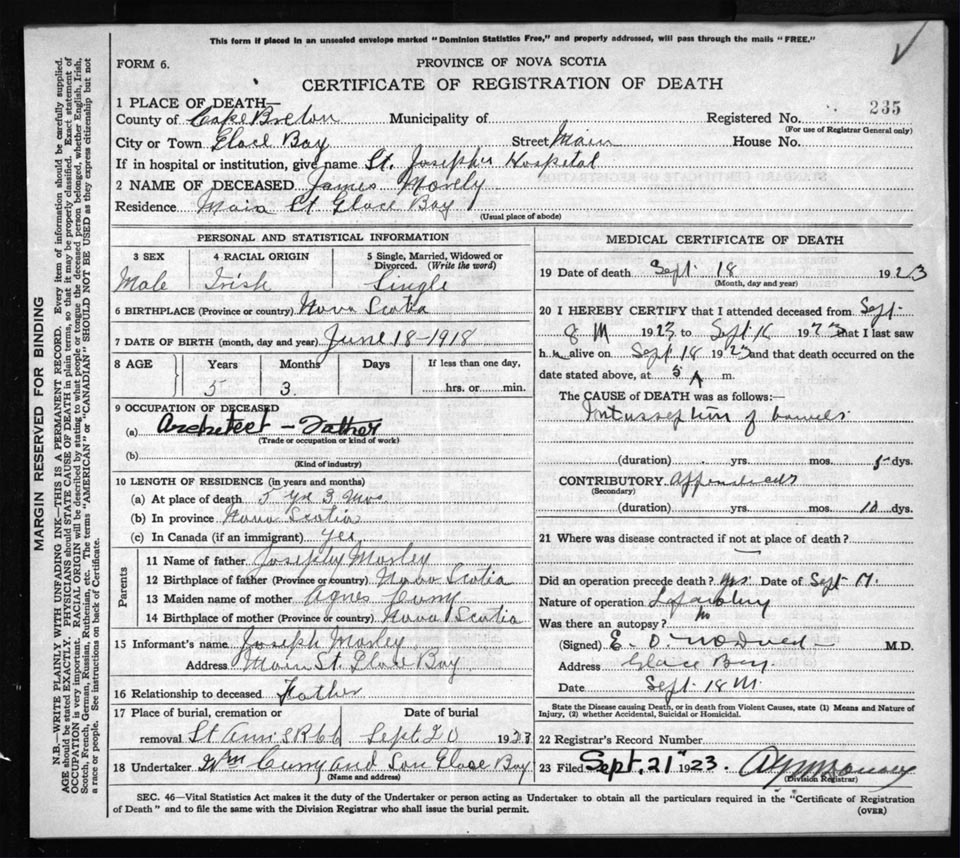 This form if placed in an unsealed envelope marked "Dominion Statistics Free," and properly addressed, will pass through the mails "FREE."
FORM 6.
PROVINCE OF NOVA SCOTIA
CERTIFICATE OF REGISTRATION OF DEATH
1 PLACE OF DEATH—
County of Cape Breton Municipality of Registered No. 235
(For use of Registrar General only)
City or Town Glace Bay Street Main House No.
If in hospital or institution, give name St. Joseph's Hospital
2 NAME OF DECEASED James Morely
Residence Main St Glace Bay
(Usual place of abode)
PERSONAL AND STATISTICAL INFORMATION
3 SEX 4 RACIAL ORIGIN 5 Single, Married, Widowed or Divorced. (Write the word)
Male Irish Single
6 BIRTHPLACE (Province or country) Nova Scotia
7 DATE OF BIRTH (month, day and year) June 18-1918
8 AGE Years Months Days If less than one day,
5 3 hrs. or min.
9 OCCUPATION OF DECEASED
(a) Architect - Father
(Trade or occupation or kind of work)
(b)
(Kind of industry)
10 LENGTH OF RESIDENCE (in years and months)
(a) At place of death 5 yr 3 Mos
(b) In province Nova Scotia
(c) In Canada (if an immigrant) yes
Parents
11 Name of father Joseph Morley
12 Birthplace of father (Province or country) Nova Scotia
13 Maiden name of mother Agnes Curry
14 Birthplace of mother (Province or country) Nova Scotia
15 Informant's name Joseph Morley
Address Main St. Glace Bay
16 Relationship to deceased Father
17 Place of burial, cremation or removal Date of burial
St Ann's Sept 20 1923
18 Undertaker Wm Curry and Son Glace Bay
(Name and address)
MEDICAL CERTIFICATE OF DEATH
19 Date of death Sept 18 1923
(Month, day and year)
20 I HEREBY CERTIFY that I attended deceased from Sept
8 1923 to Sept 1923 that I last saw
h alive on Sept 18 1923 and that death occurred on
date stated above, at 5 A m.
The CAUSE of DEATH was as follows:
of bowels
(duration) yrs. mos. dys.
CONTRIBUTORY
(Secondary)
(duration) yrs. mos. 10 dys.
21 Where was disease contracted if not at place of death?
Did an operation precede death? yes. Date of Sept 17.
Nature of operation
Was there an autopsy? no
(Signed) E. O. M.D.
Address Glace Bay.
Date Sept 18
State the Disease causing Death, or in death from Violent Causes, state (1) Means and Nature of Injury, (2) whether Accidental, Suicidal or Homicidal.
22 Registrar's Record Number
23 Filed Sept. 21" 1923.
(Division Registrar)
SEC. 46—Vital Statistics Act makes it the duty of the Undertaker or person acting as Undertaker to obtain all the particulars required in the "Certificate of Registration
of Death" and to file the same with the Division Registrar who shall issue the burial permit. (OVER)
MARGIN RESERVED FOR BINDING
N.B.—WRITE PLAINLY WITH UNFADING INK—THIS IS A PERMANENT RECORD. Every item of information should be carefully supplied.
AGE should be stated EXACTLY. PHYSICIANS should STATE CAUSE OF DEATH in plain terms, so that it may be properly classified. Exact statement of
OCCUPATION is very important. RACIAL ORIGIN will be described by stating to what people or tongue the deceased person belonged, whether English, Irish,
Scotch, French, German, Russian, Ruthenian, etc. The terms "AMERICAN" or "CANADIAN" SHOULD NOT BE USED as they express citizenship but not
a race or people. See instructions on back of Certificate.